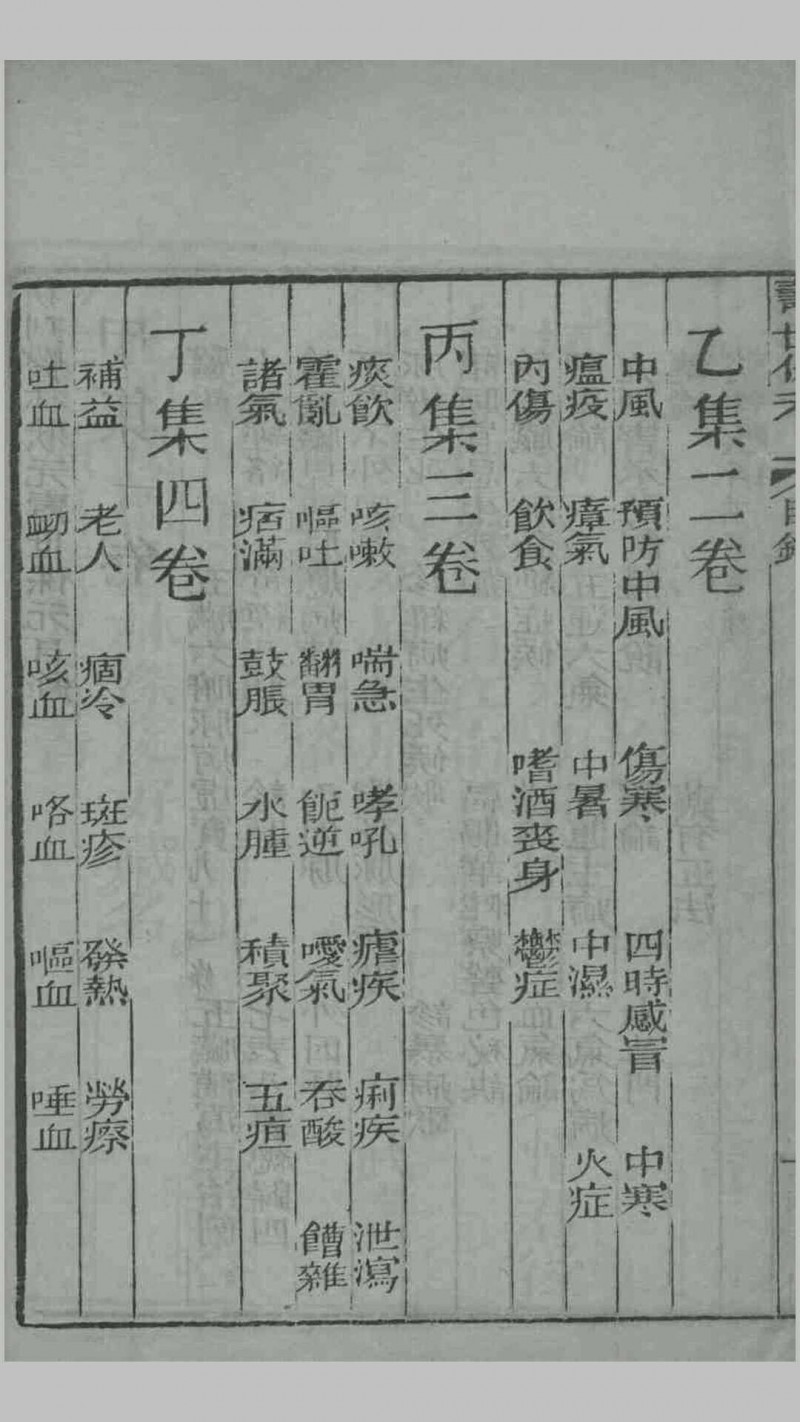 壽世保元 目錄
乙集二卷
中風 預防中風 傷寒 四時感冒 中寒
瘟疫 瘴氣 中暑 中濕 火症
內傷 飲食 嗜酒喪身 鬱症
丙集三卷
痰飲 咳嗽 喘急 哮吼 瘧疾 痢疾 泄瀉
霍亂 嘔吐 翻胃 呃逆 噯氣 吞酸 嘈雜
諸氣 痞滿 鼓脹 水腫 積聚 五疸
丁集四卷
補益 老人 痼冷 斑疹 發熱 勞瘵
吐血 衂血 咳血 咯血 嘔血 唾血